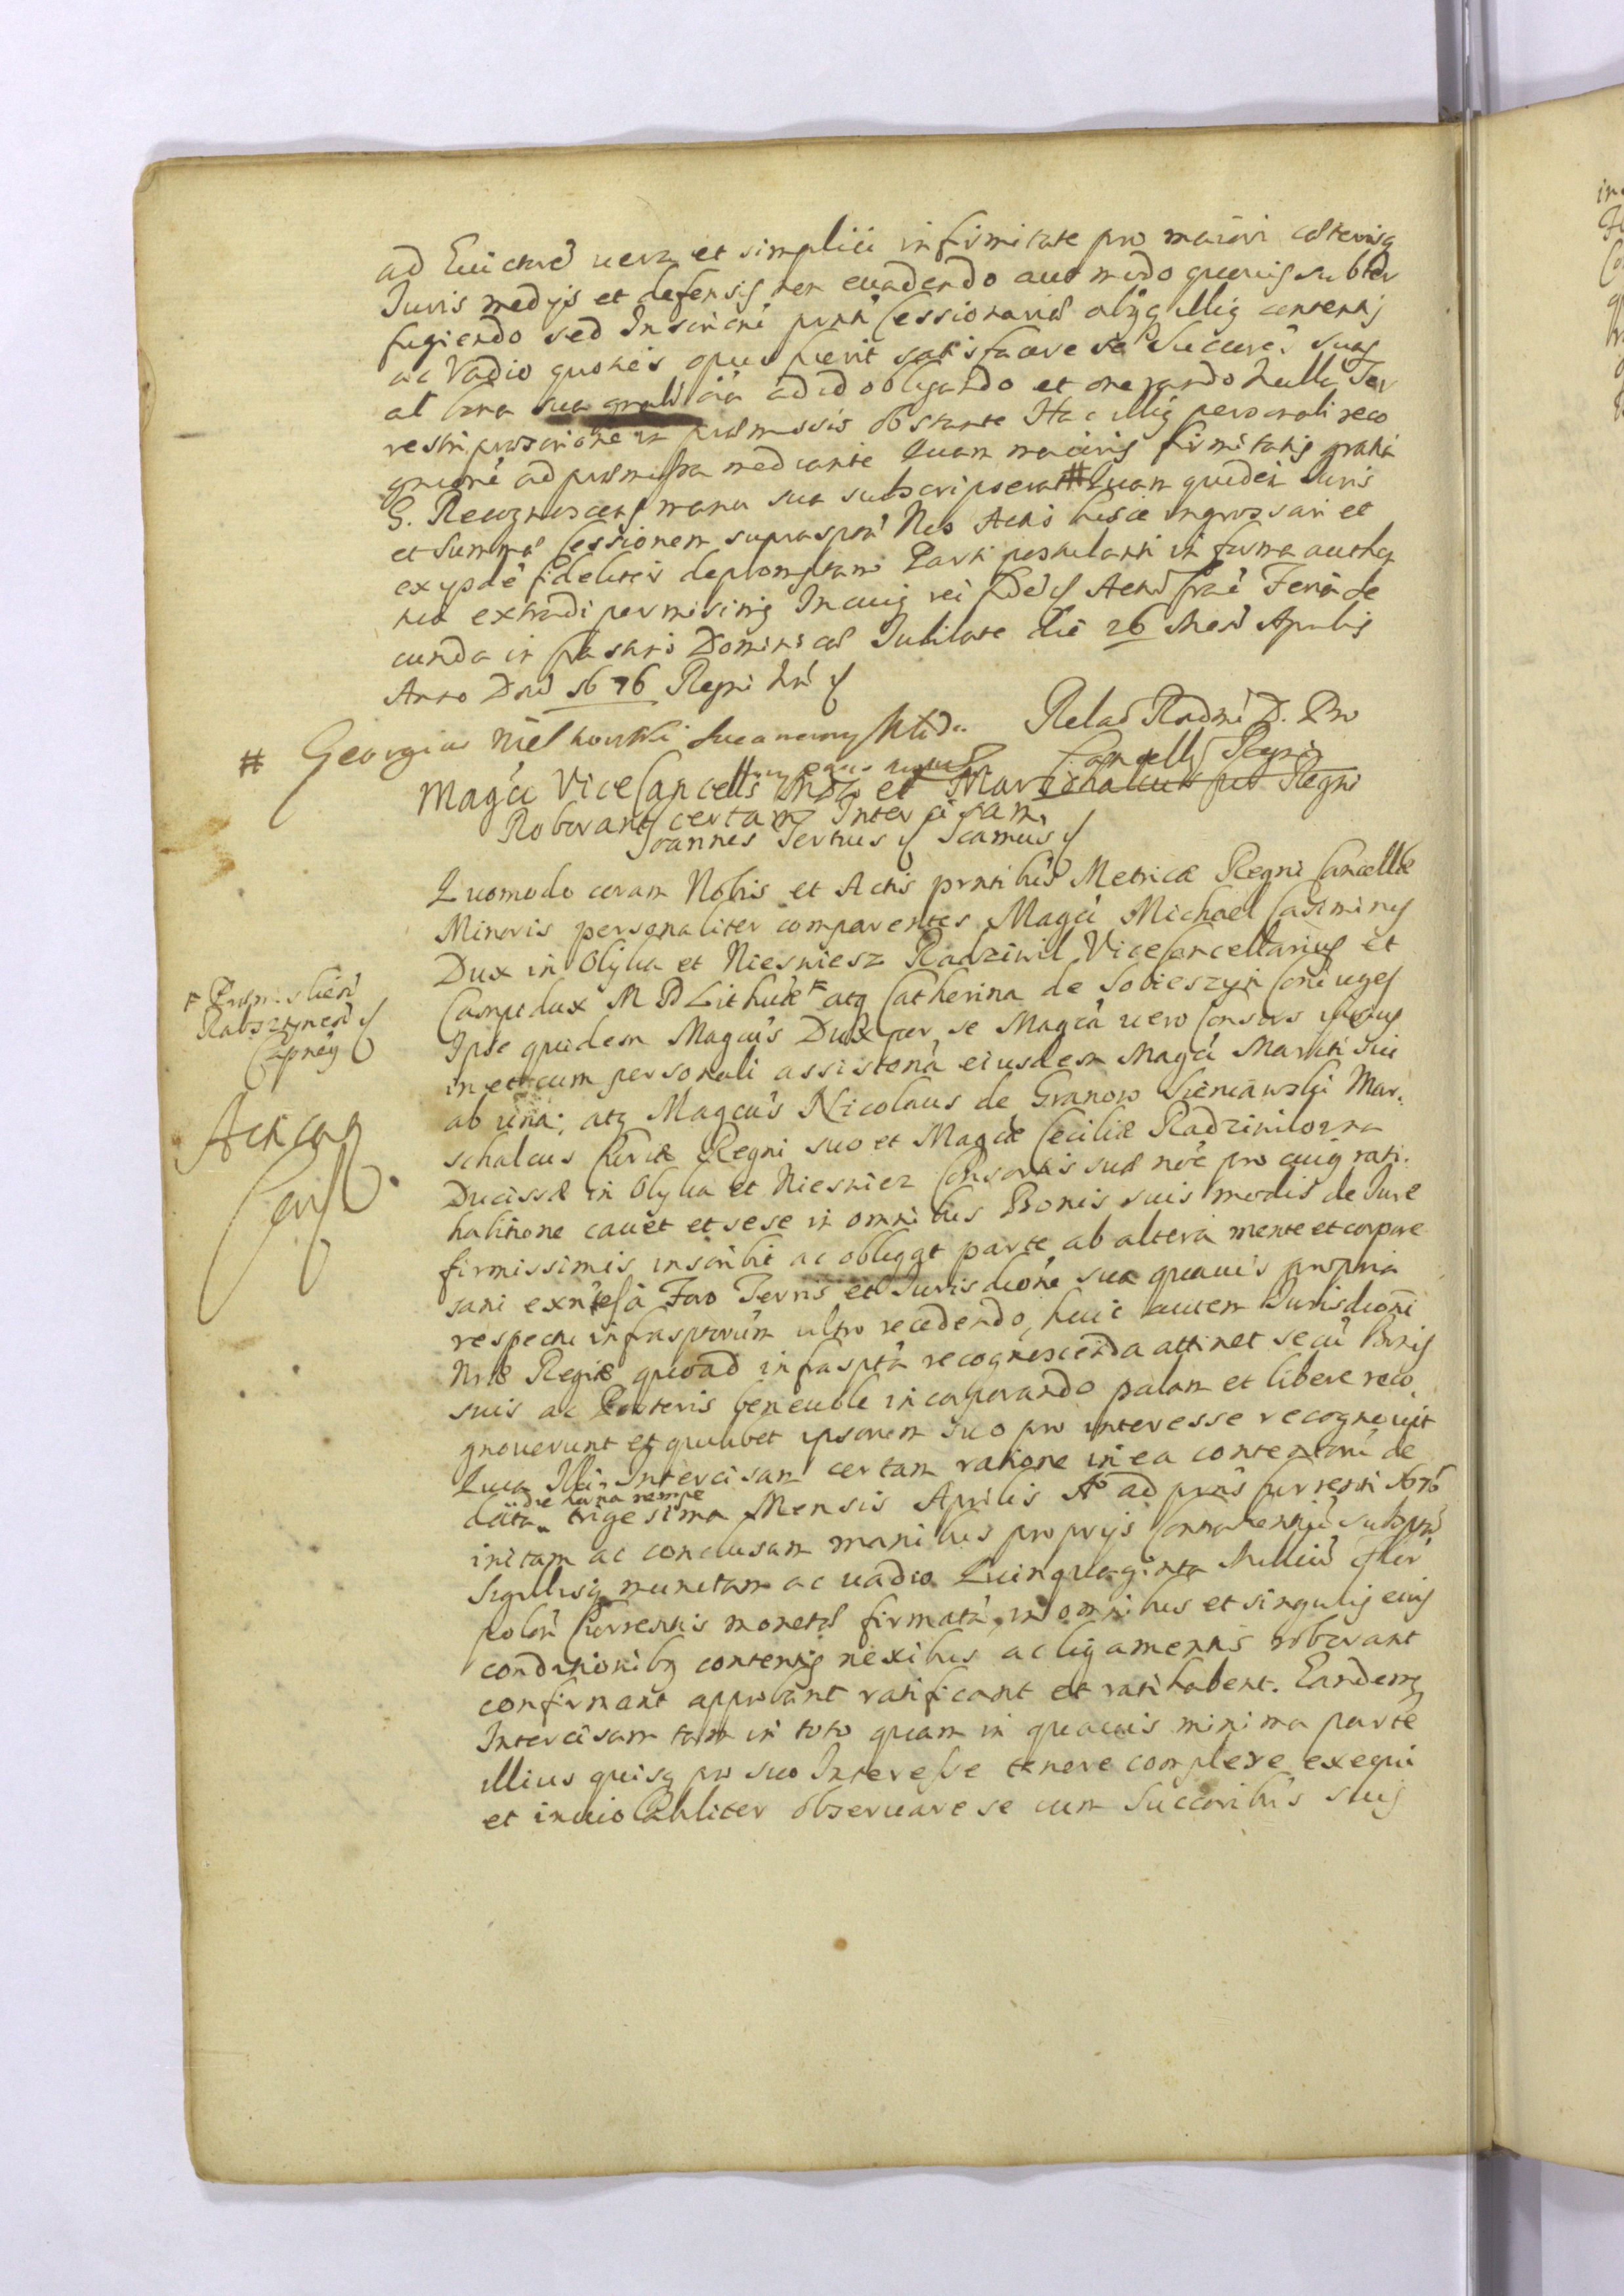 ad Euictoē uera et simplici infirmitate pro maiori caeterisq
Juris medijs et defensis non euadendo aut modo quouis subter
fugiendo sed Inscricni prnti Cessionariae alijsq illius contentis
ac Vadio quoties opus fuerit satisfacere se Succores suos
at bona sua gnrlr oīa ad id obligando et onerando nulla Ter
restri praescriptione in praemissis obstante Hac illius personali reco
gnicōne ad praemissa mediante Quam maioris firmitatis gratia
G. Recognoscens manu sua subscripserat # Quam quidem Juris
et Summae Cessionem supraspta Nos Actis hisce ingrossari et
ex ijsdē fideliter depromptam Parti postulanti in forma authen
tica extradi permisimus In cuius rei fidē Actū Feria Se
cunda in Crastino Dominicae Jubilate die 26 Mens Aprilis
Anno Dni 1676 Regni Nri
# Georgius
Relaō Rndmi D. Pro
Cancell Regni
Magci ViceCancell MDL et Marschalcus Cur Regni
Roborant certam Intercisam
Joannes Tertius Scamus
Quomodo coram Nobis et Actis prntibus Metricae Regni Cancellae
Minoris personaliter comparentes Magci Michael Casimirus
Dux in Olyka et Niesniesz Radziwil ViceCancellarius et
Campidux M D Lithuae # atq Catherina de Sobieszyn Coniuges
# Praemislien
Rabsztynen
Capneus
Ipse quidem Magcus Dux per se Magca uero Consors ipsius
in et cum personali assistena eiusdem Magci Mariti sui
ab una; atq Magcus Nicolaus de Granow Sieniawski Mar
schalcus Curiae Regni suo et Magcae Ceciliae Radziwilowna
Ducissae in Olyka et Niesniez Consortis suae noīe pro cuius rati
habitione cauet et sese in omnibus Bonis suis modis de Jure
firmissimis inscribit ac obligat parte ab altera mente et corpore
sani exntes à Foro Terris et Jurisdicōne sua quauis propria
respectu infrasptorum ultro recedendo, huic autem Jurisdicōni
Nrae Regiae quoad infraspta recognoscenda attinet se cū Bonis
suis ac Posteris beneuole incorporando palam et libere reco
gnouerunt et quilibet ipsorum suo pro interesse recognouit
Quia Illi Intercisam certam ratione in ea contentorū de
data die
trigesima Mensis Aprilis Ao ad prns currenti 1676
initam ac conclusam manibus proprijs Contrahentiū subspta
Sigillisq munitam ac uadio Quinquaginta Milliū flor
polon Currentis monetae firmatā, in omnibus et singulis eius
conditionibus contentis nexibus ac ligamentis roborant
confirmant approbant ratificant et ratihabent. Eandem
Intercisam tam in toto quam in quauis minima parte
illius quisq pro suo Interesse tenere complere exequi
et inuiolabiliter obseruare se cum Succoribus suis